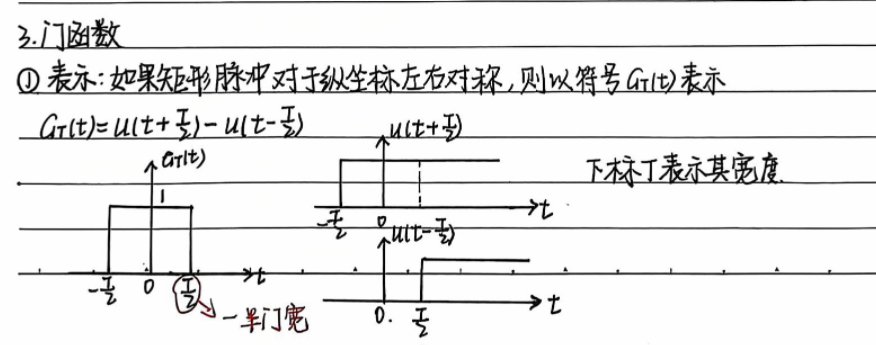 3.门函数
① 表示:如果矩形脉冲对于纵坐标左右对称,则以符号 G_T(t)表示
G_T(t)=u(t+T/2)-u(t-T/2)
G_T(t)
1
-T/2 0 T/2 t
一半门宽
u(t+T/2)
-T/2 0 t
下标T表示其宽度.
u(t-T/2)
0. T/2 t